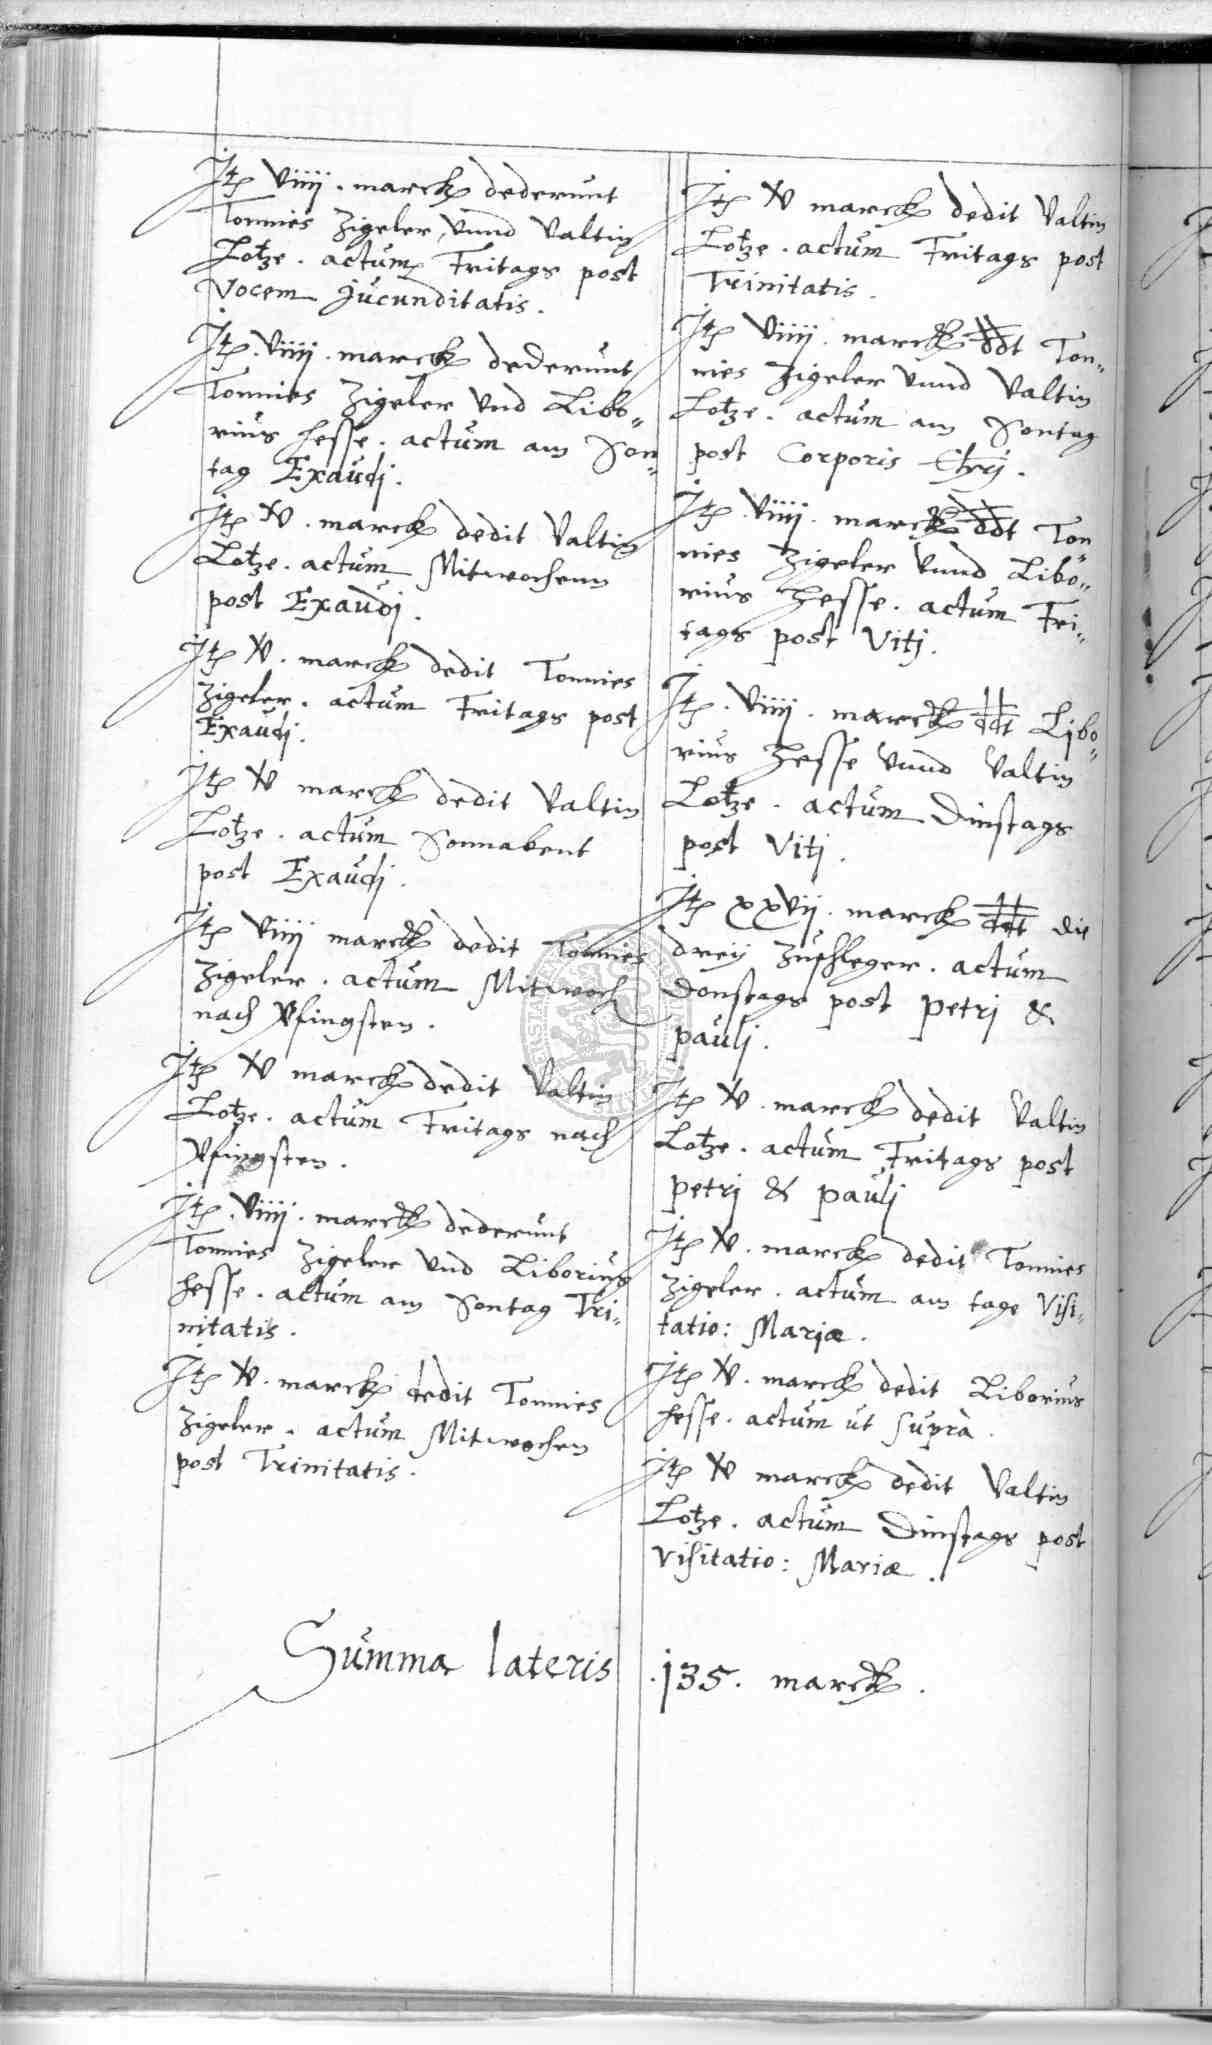 Itē viiij. marck dederunt
Tonnies Zigeler, vnnd Valtin
Lotze. actum Fritags post
Vocem Jucunditatis.
Itē. viiij. marck dederunt
Tonnies Zigeler vnd Libo„
rius Hesse. actum am Son„
tag Exaudj.
Itē v. marck dedit Valtin
Lotze. actum Mitwochenn
post Exaudj.
Itē v. marck dedit Tonnies
Zigeler. actum Fritags post
Exaudj.
Itē v marck dedit Valtin
Lotze. actum Sonnabent
post Exaudj.
Itē viiij marck dedit Tonnies
Zigeler. actum Mitwoch
nach Pfingsten.
Itē v marck dedit Valtin
Lotze. actum Fritags nach
Pfingsten.
Itē. viiij. marck dederunt
Tonnies Zigeler vnd Liborius
Hesse. actum am Sontag Tri„
nitatis.
Itē v. marck dedit Tonnies
Zigeler. actum Mitwochen
post Trinitatis.
Itē v marck dedit Valtin
Lotze. actum Fritags post
Trinitatis.
Itē viiij. marck ddt Ton„
nies Zigeler vnnd Valtin
Lotze. actum am Sontag
post Corporis Chrj.
Itē. viiij. marck ddt Ton„
nies Zigeler vnnd Libo„
rius Hesse. actum Fri„
tags post Vitj.
Itē. viiij. marck ddt Libo„
rius Hesse vnnd Valtin
Lotze. actum Dinstags
post Vitj.
Itē xxvij. marck ddt die
drey Zuschleger. actum
Donstags post Petrj &
Paulj.
Itē v. marck dedit Valtin
Lotze. actum Fritags post
Petrj & Paulj
Itē v. marck dedit Tonnies
Zigeler. actum am tage Visi„
tatio: Mariæ.
Itē v. marck dedit Liborius
Hesse. actum ut suprà.
Itē v marck dedit Valtin
Lotze. actum Dinstags post
Visitatio: Mariæ.
Summa lateris .135. marck.